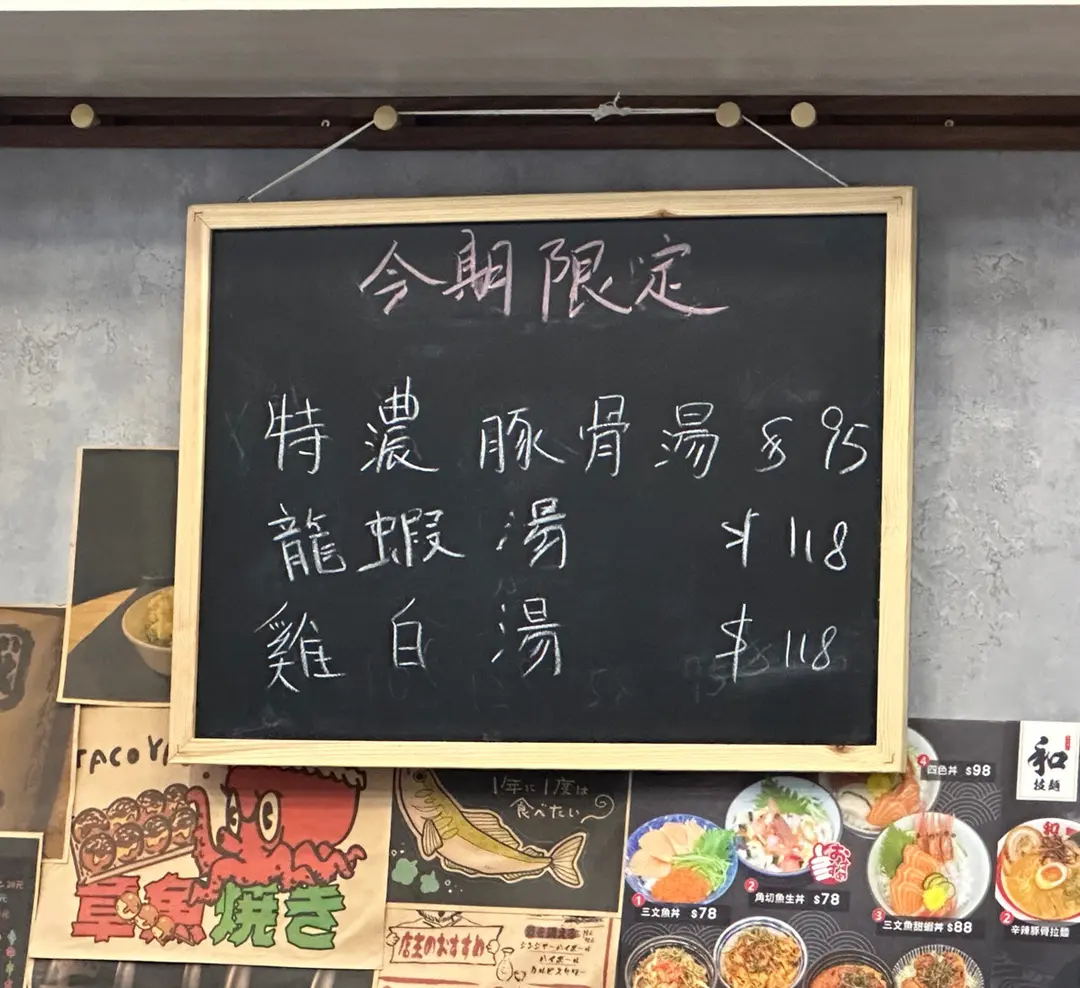 今期限定
特濃豚骨湯 $ 95
龍蝦湯 $ 118
雞白湯 $ 118
章魚焼き
1年に1度は
食べたい
店主のおすすめ
ジンジャーハイボール
ハイボール
カルピスサワー
4 四色丼 $98
和
拉麵
1 三文魚丼 $78
2 角切魚生丼 $78
3 三文魚甜蝦丼 $88
2 辛辣豚骨拉麵